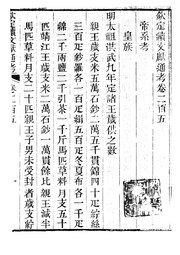 欽定續文獻通考卷二百五
帝系考
皇族
明太祖洪武九年定諸王歲供之數
親王歲支米五萬石鈔二萬五千貫錦四十疋紵絲
三百疋紗羅各一百疋絹五百疋冬夏布各一千疋
綿二千兩鹽二千引茶一千斤馬匹草料月支五十
匹靖江王歲支米二萬石鈔一萬貫餘比親王減半
馬匹草料月支二十匹親王子男未受封者歲支紵
欽定續文獻通考
卷二百五